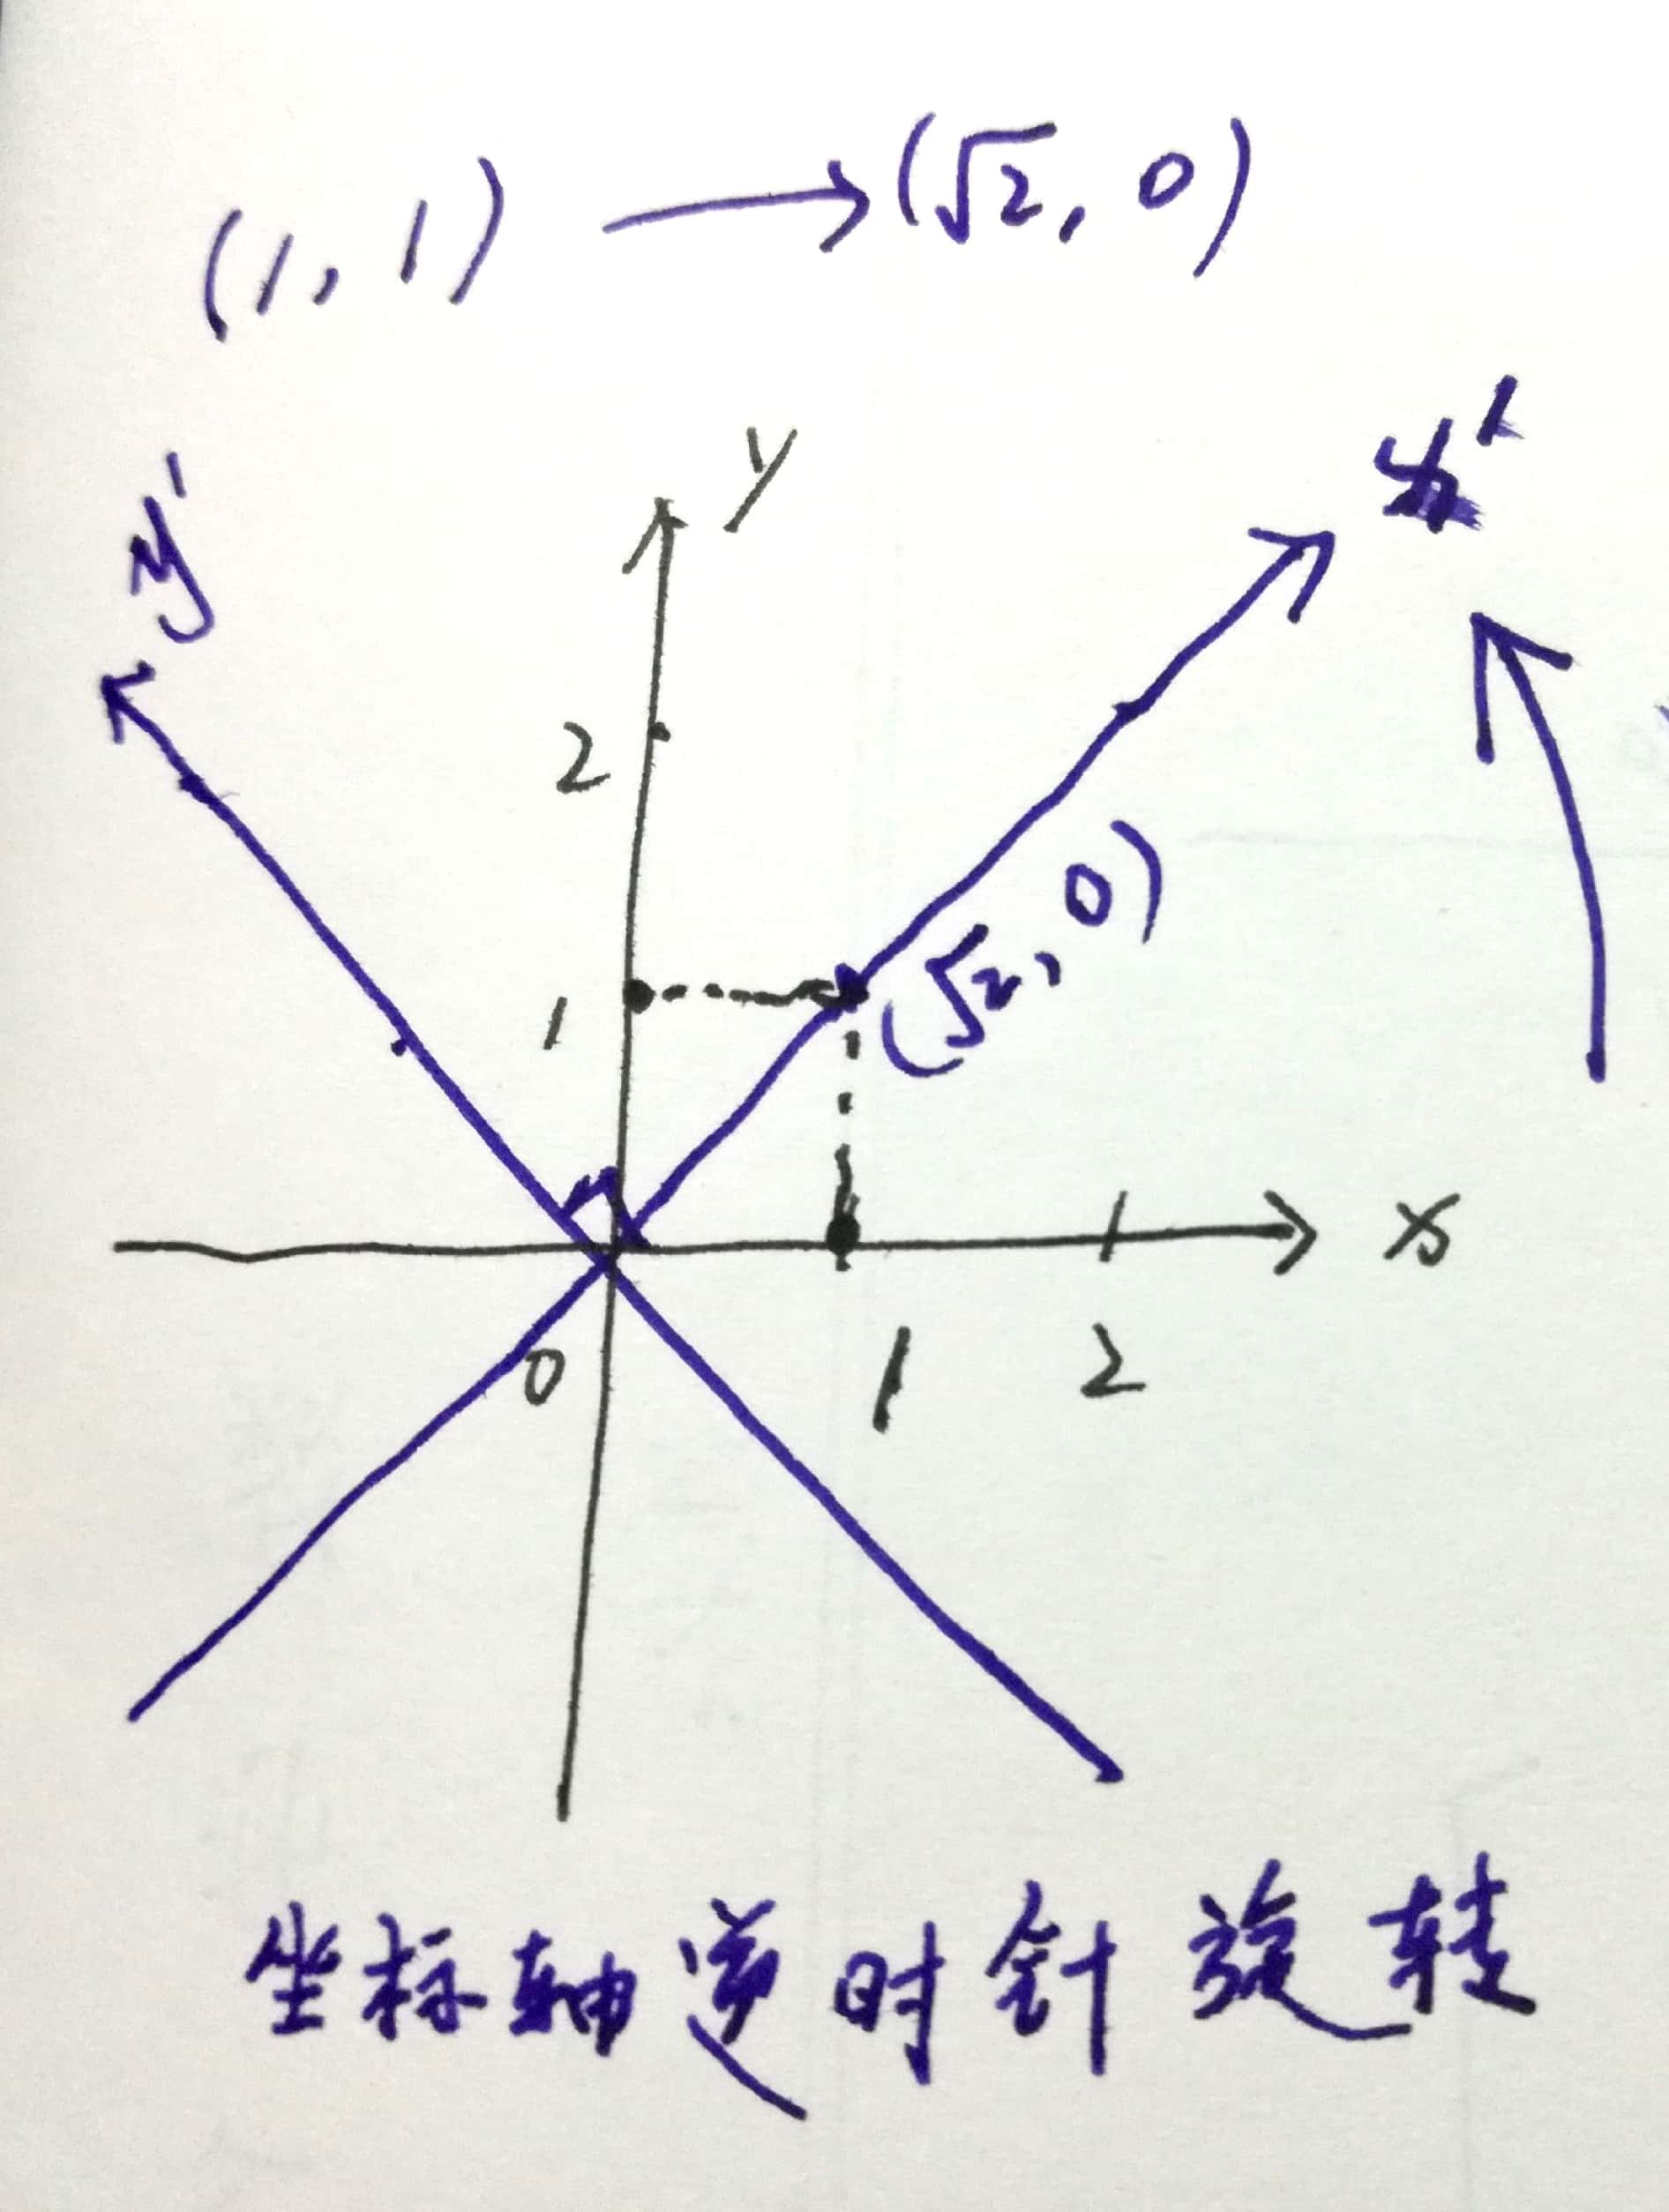 (1, 1) → (√2, 0)
x'
y
y'
2
(√2, 0)
1
x
0
1
2
坐标轴逆时针旋转